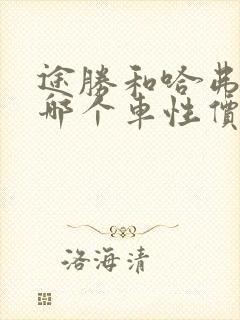 途勝和哈弗
哪个车性價
洛海清